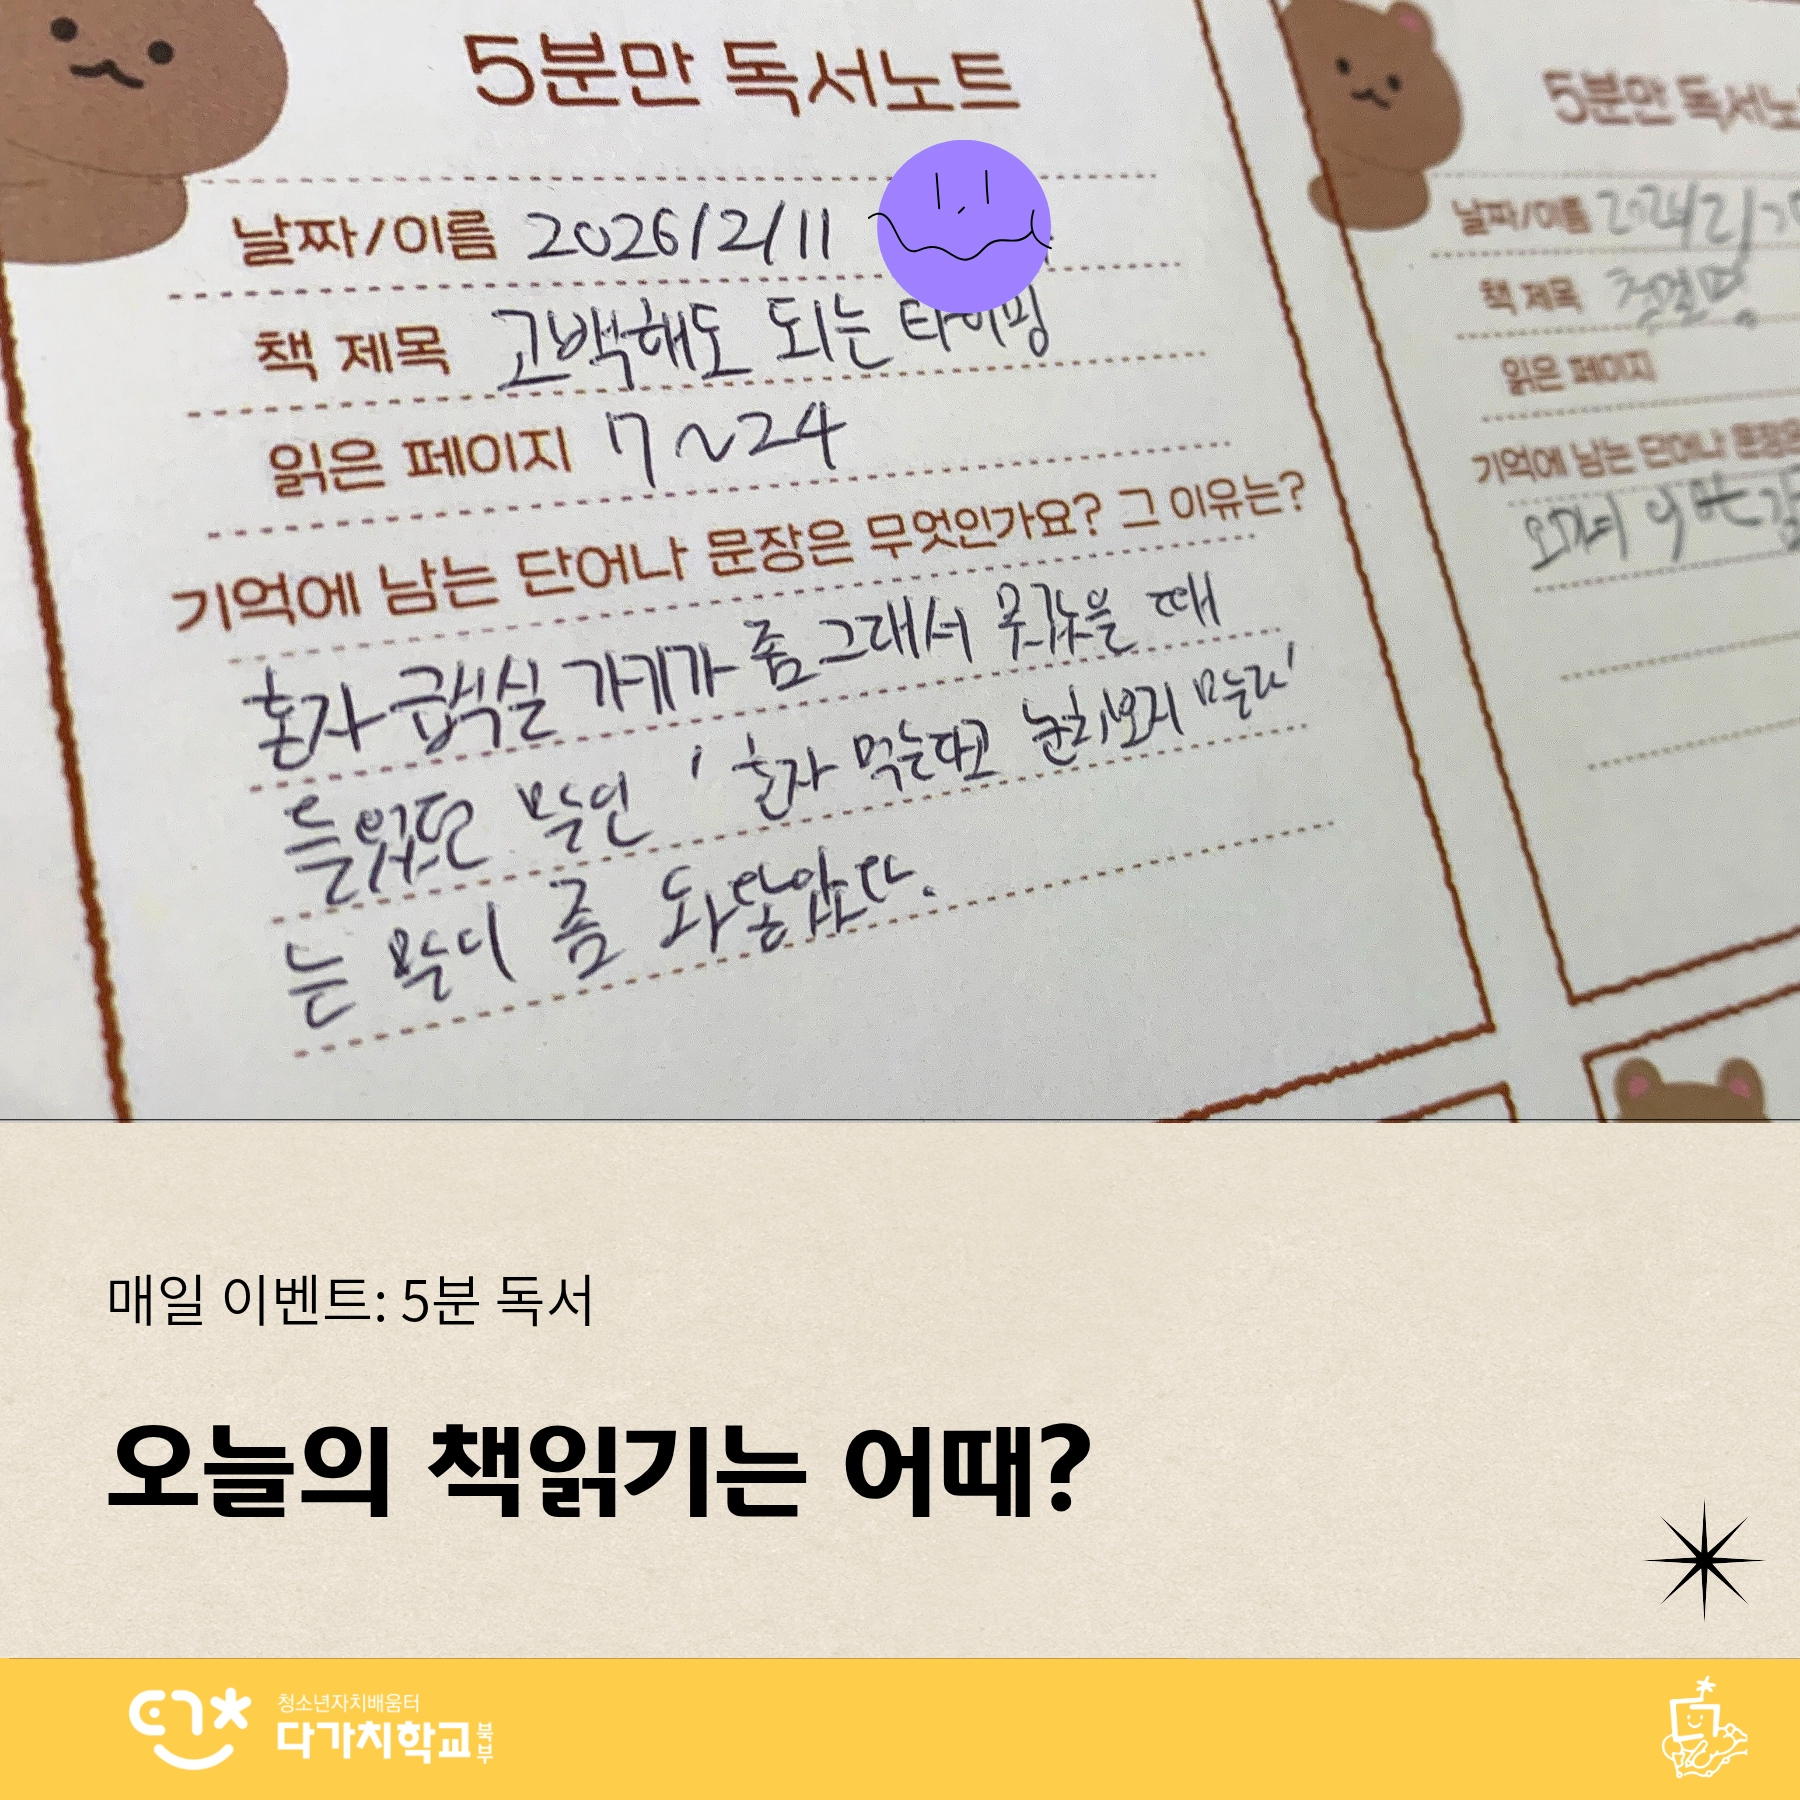 5분만 독서노트
날짜/이름 2026/2/11
책 제목 고백해도 되는 타이밍
읽은 페이지 7~24
기억에 남는 단어나 문장은 무엇인가요? 그 이유는?
혼자 급식실 가기가 좀 그래서 무갔을 때
들었던 말인 '혼자 먹는다고 눈치보지 마라'
는 말이 좀 와닿았다.
5분만 독서노
날짜/이름
책 제목
읽은 페이지
기억에 남는 단어나 문장은
매일 이벤트: 5분 독서
오늘의 책읽기는 어때?
청소년자치배움터
다가치학교 북부